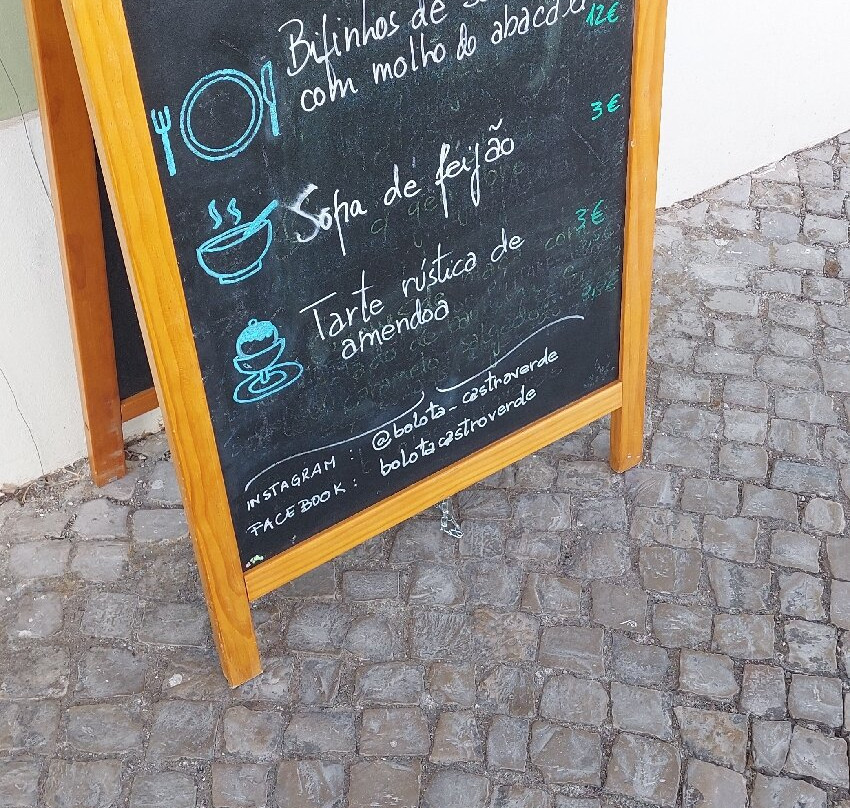 Bifinhos de
com molho do abacaxi 12€
Sopa de feijão 3€
Tarte rústica de 3€
amendoa
INSTAGRAM : @bolota_castroverde
FACEBOOK : bolotacastroverde